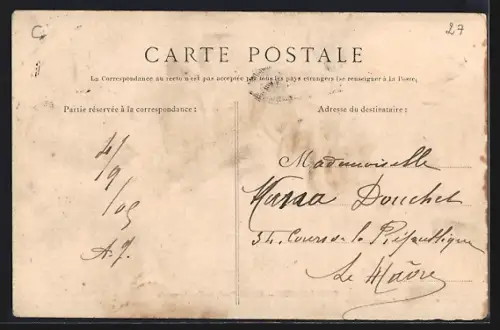 C
27
CARTE POSTALE
La Correspondance au recto n'est pas acceptée par tous les pays étrangers (se renseigner à la Poste)
Partie réservée à la correspondance :
Adresse du destinataire :
4/
9/
/05
A.J.
Mademoiselle
Douchet
34. Cours de la République
Le Hâvre